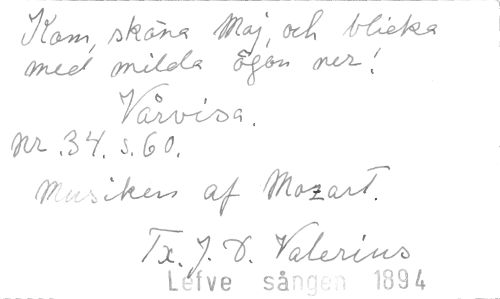 Kom, sköna Maj, och blicka
med milda ögon ner!
Vårvisa.
Nr. 34. s. 60.
Musiken af Mozart.
Tx. J. D. Valerius
Lefve sången 1894